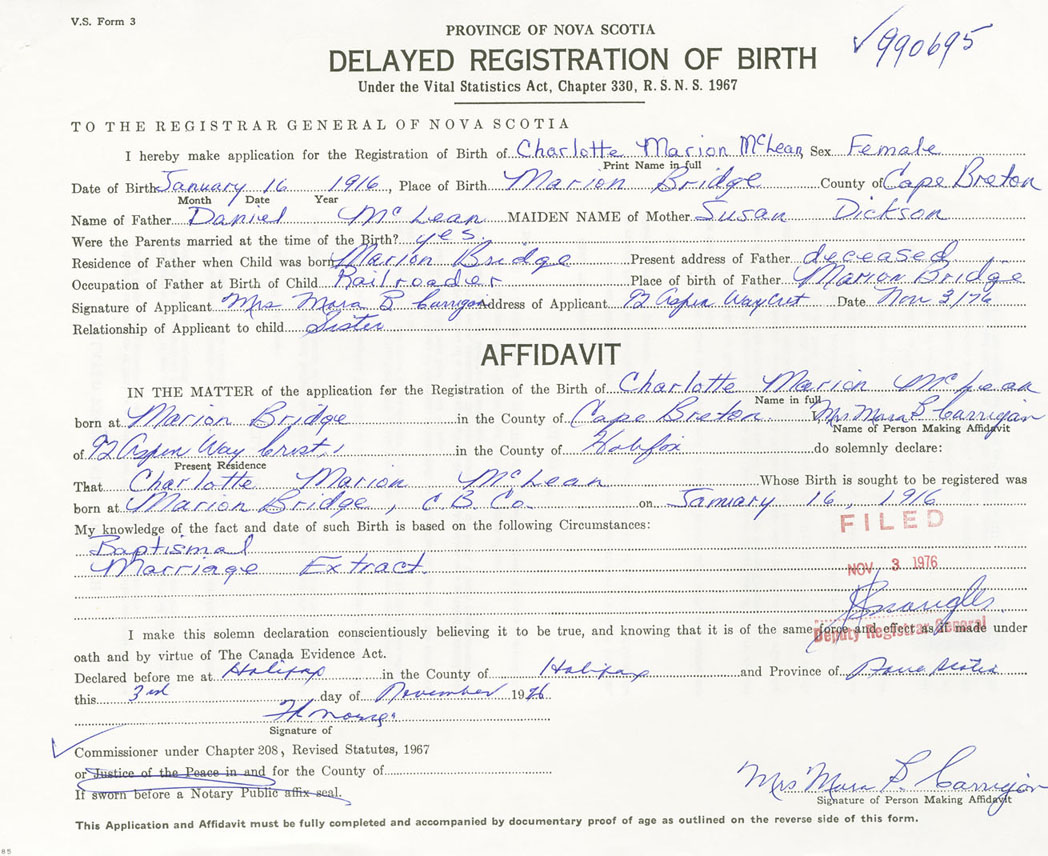 V.S. Form 3
PROVINCE OF NOVA SCOTIA
990695
DELAYED REGISTRATION OF BIRTH
Under the Vital Statistics Act, Chapter 330, R.S.N.S. 1967
TO THE REGISTRAR GENERAL OF NOVA SCOTIA
I hereby make application for the Registration of Birth of Charlotte Marion McLean Sex Female
Print Name in full
Date of Birth January 16 1916, Place of Birth Marion Bridge County of Cape Breton
Month Date Year
Name of Father Daniel McLean MAIDEN NAME of Mother Susan Dickson
Were the Parents married at the time of the Birth? yes.
Residence of Father when Child was born Marion Bridge Present address of Father deceased
Occupation of Father at Birth of Child Railroader Place of birth of Father Marion Bridge
Signature of Applicant Mrs Mora B Carrigan Address of Applicant Aspen Way Date Nov 3/76
Relationship of Applicant to child Sister
AFFIDAVIT
IN THE MATTER of the application for the Registration of the Birth of Charlotte Marion McLean
Name in full
born at Marion Bridge in the County of Cape Breton Mrs Mora B Carrigan
Name of Person Making Affidavit
of Aspen Way in the County of Halifax do solemnly declare:
Present Residence
That Charlotte Marion McLean Whose Birth is sought to be registered was
born at Marion Bridge, C.B. Co. on January 16, 1916
My knowledge of the fact and date of such Birth is based on the following Circumstances:
FILED
Baptismal
Marriage Extract.
NOV 3 1976
I make this solemn declaration conscientiously believing it to be true, and knowing that it is of the same force and effect as if made under
Deputy Registrar General
oath and by virtue of The Canada Evidence Act.
Declared before me at Halifax in the County of Halifax and Province of Nova Scotia
this 3rd day of November 1976
Signature of
Commissioner under Chapter 208, Revised Statutes, 1967
or Justice of the Peace in and for the County of
If sworn before a Notary Public affix seal.
Mrs Mora B Carrigan
Signature of Person Making Affidavit
This Application and Affidavit must be fully completed and accompanied by documentary proof of age as outlined on the reverse side of this form.
85